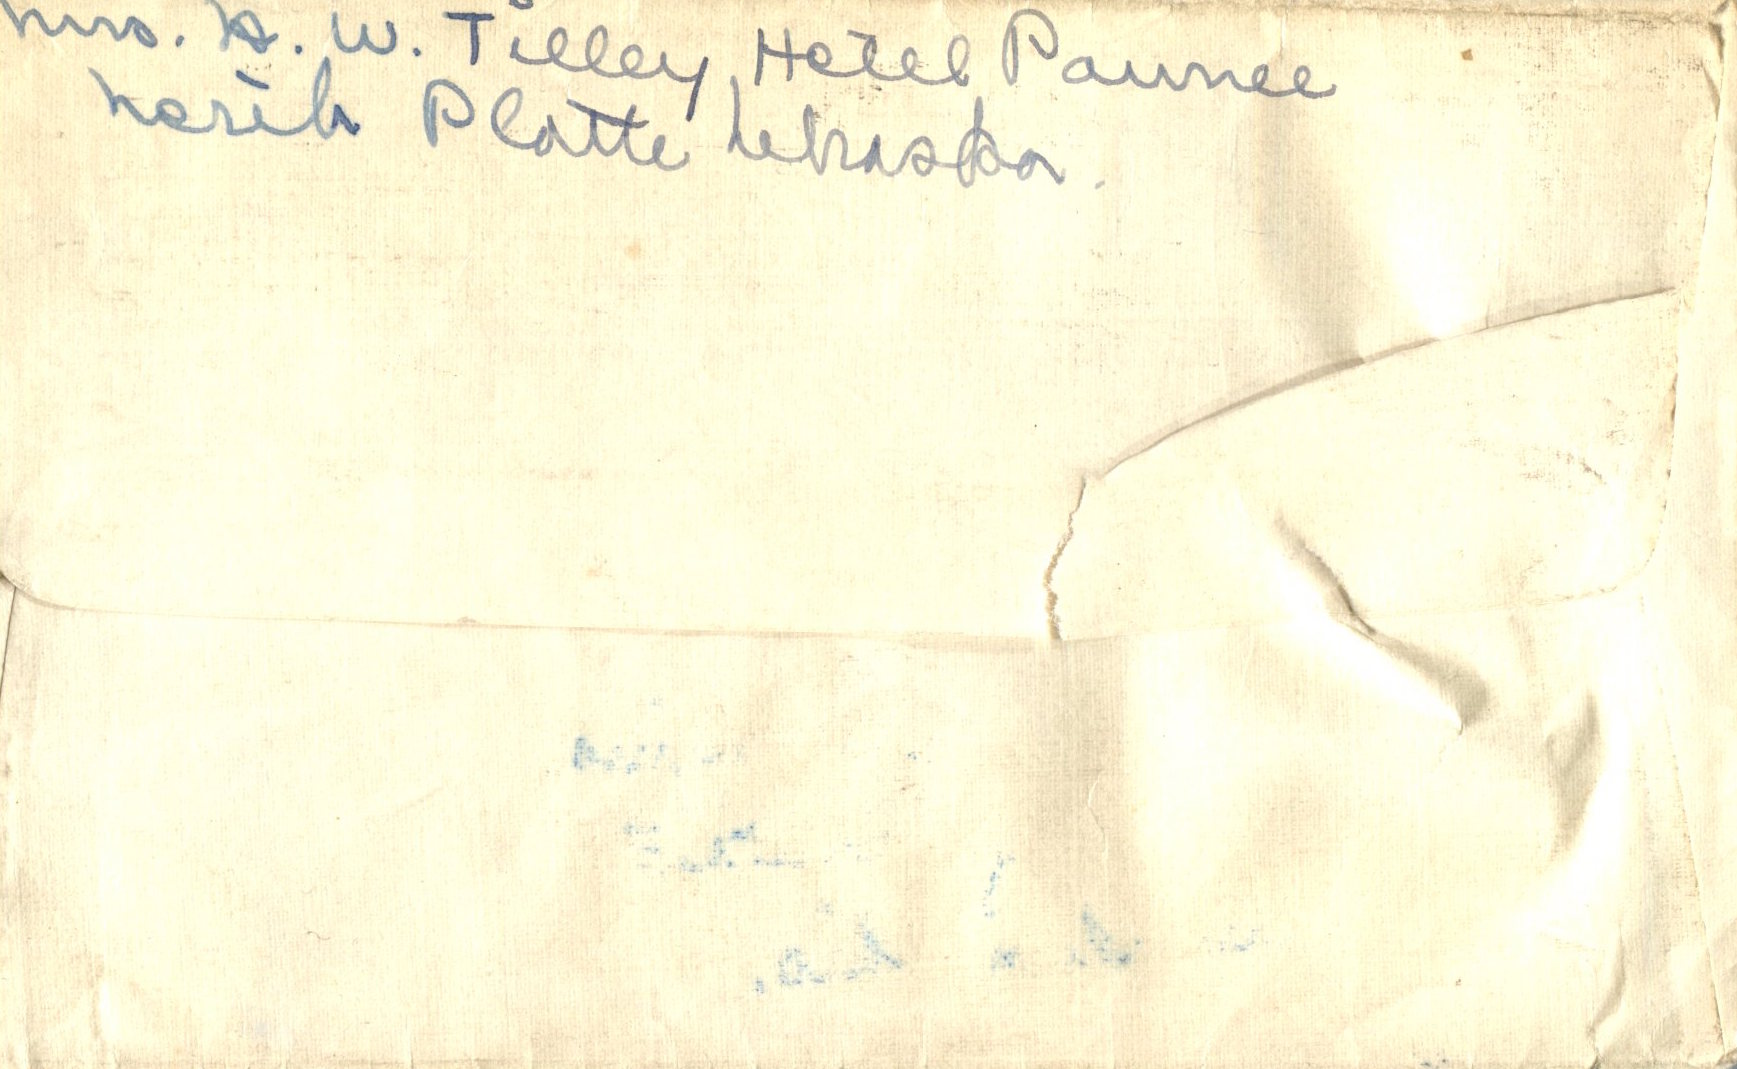 Mrs. H. W. Tilley, Hotel Pawnee
North Platte Nebraska.